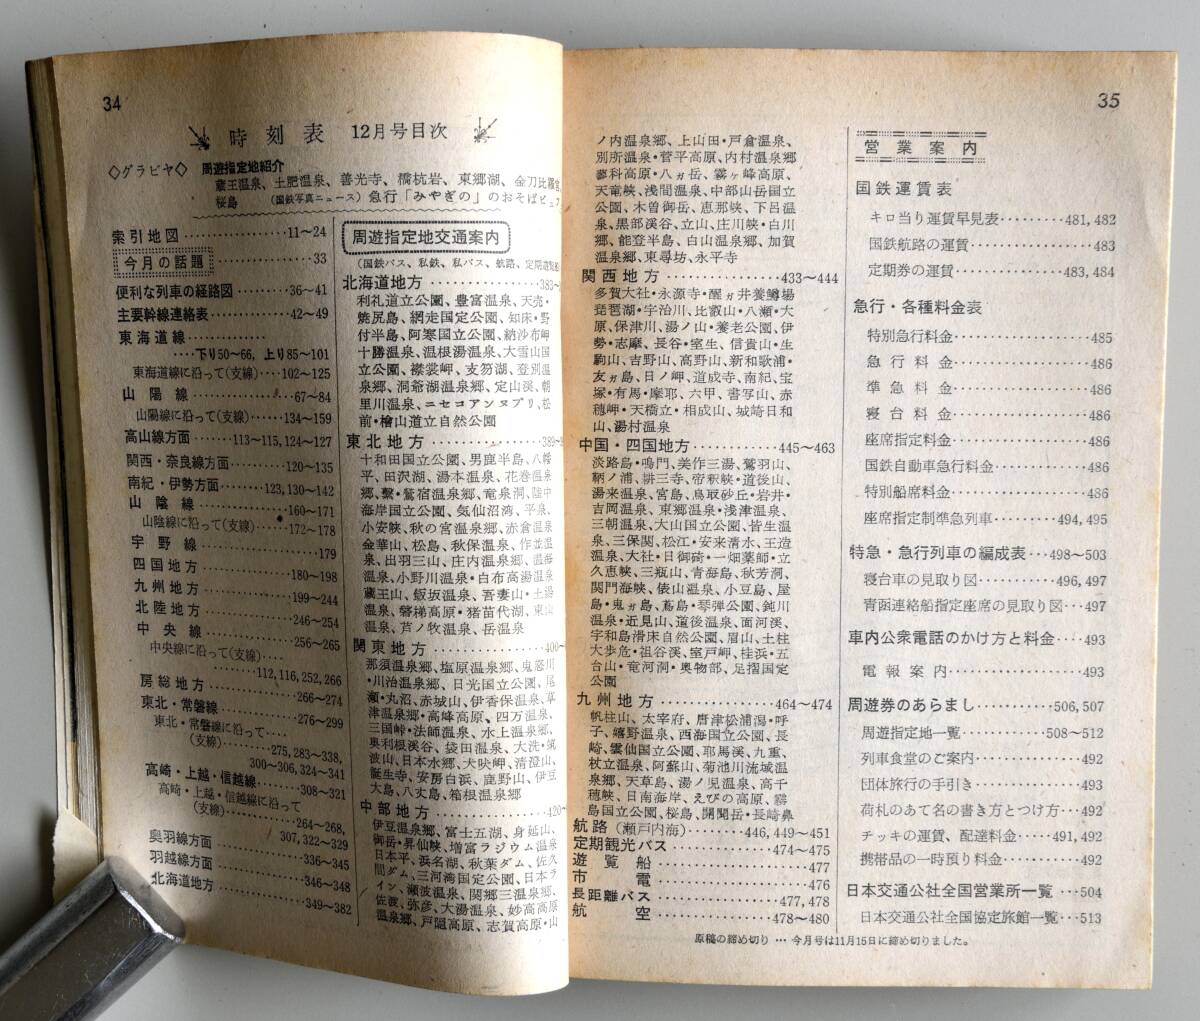 34
時刻表 12月号目次
◇グラビヤ◇ 周遊指定地紹介
蔵王温泉、土肥温泉、善光寺、橋杭岩、東郷湖、金刀比羅宮,
桜島 (国鉄写真ニュース) 急行「みやぎの」のおそばビュフ
索引地図 11~24
今月の話題 33
便利な列車の経路図 36~41
主要幹線連絡表 42~49
東海道線
下り50~66, 上り85~101
東海道線に沿って(支線) 102~125
山陽線 67~84
山陽線に沿って(支線) 134~159
高山線方面 113~115, 124~127
関西・奈良線方面 120~135
南紀・伊勢方面 123, 130~142
山陰線 160~171
山陰線に沿って(支線) 172~178
宇野線 179
四国地方 180~198
九州地方 199~244
北陸地方 246~254
中央線 256~265
中央線に沿って(支線)
112, 116, 252, 266
房総地方 266~274
東北・常磐線 276~299
東北・常磐線に沿って
(支線)
275, 283~338,
300~306, 324~341
高崎・上越・信越線 308~321
高崎・上越・信越線に沿って
(支線) 264~268,
307, 322~329
奥羽線方面 336~345
羽越線方面 346~348
北海道地方 349~382
周遊指定地交通案内
(国鉄バス、私鉄、私バス、航路、定期遊覧船
北海道地方 383~
利礼道立公園、豊富温泉、天売・
焼尻島、網走国定公園、知床・野
付半島、阿寒国立公園、納沙布岬
十勝温泉、温根湯温泉、大雪山国
立公園、襟裳岬、支笏湖、登別温
泉郷、洞爺湖温泉郷、定山渓、朝
里川温泉、ニセコアンヌプリ、松
前・檜山道立自然公園
東北地方 389~
十和田国立公園、男鹿半島、八幡
平、田沢湖、湯本温泉、花巻温泉
郷、繋・鶯宿温泉郷、竜泉洞、陸中
海岸国立公園、気仙沼湾、平泉、
小安峡、秋の宮温泉郷、赤倉温泉
金華山、松島、秋保温泉、作並温
泉、出羽三山、庄内温泉郷、温海
温泉、小野川温泉・白布高湯温泉
蔵王山、飯坂温泉、吾妻山・土湯
温泉、磐梯高原・猪苗代湖、東山
温泉、芦ノ牧温泉、岳温泉
関東地方 400~
那須温泉郷、塩原温泉郷、鬼怒川
・川治温泉郷、日光国立公園、尾
瀬・丸沼、赤城山、伊香保温泉、草
津温泉郷・高峰高原、四万温泉、
三国峠・法師温泉、水上温泉郷、
奥利根溪谷、袋田温泉、大洗・筑
波山、日本水郷、犬吠岬、清澄山、
誕生寺、安房白浜、鹿野山、伊豆
大島、八丈島、箱根温泉郷
中部地方 420~
伊豆温泉郷、富士五湖、身延山、
御岳・昇仙峡、増富ラジウム温泉
日本平、浜名湖、秋葉ダム、佐久
間ダム、三河湾国定公園、日本ラ
イン、瀬波温泉、関郷三温泉郷、
佐渡、弥彦、大湯温泉、妙高高原
温泉郷、戸隠高原、志賀高原・山
35
ノ内温泉郷、上山田・戸倉温泉、
別所温泉・菅平高原、内村温泉郷
蓼科高原・八ガ岳、霧ヶ峰高原、
天竜峡、浅間温泉、中部山岳国立
公園、木曽御岳、恵那峡、下呂温
泉、黒部溪谷、立山、庄川峡・白川
郷、能登半島、白山温泉郷、加賀
温泉郷、東尋坊、永平寺
関西地方 433~444
多賀大社・永源寺・醒ガ井養鱒場
琵琶湖・宇治川、比叡山・八瀬・大
原、保津川、湯ノ山・養老公園、伊
勢・志摩、長谷・室生、信貴山・生
駒山、吉野山、高野山、新和歌浦・
友ガ島、日ノ岬、道成寺、南紀、宝
塚・有馬・摩耶、六甲、書写山、赤
穂岬・天橋立・相成山、城崎日和
山、湯村温泉
中国・四国地方 445~463
淡路島・鳴門、美作三湯、鷲羽山、
鞆ノ浦、耕三寺、帝釈峡・道後山、
湯来温泉、宮島、鳥取砂丘・岩井・
吉岡温泉、東郷温泉・浅津温泉、
三朝温泉、大山国立公園、皆生温
泉、三保関、松江・安来清水、玉造
温泉、大社・日御碕・一畑薬師・立
久恵峡、三瓶山、青海島、秋芳洞、
関門海峡、俵山温泉、小豆島、屋
島・鬼ガ島、蔦島・琴弾公園、鈍川
温泉・近見山、道後温泉、面河溪、
宇和島滑床自然公園、眉山、土柱
大歩危・祖谷溪、室戸岬、桂浜・五
台山・竜河洞・奥物部、足摺国定
公園
九州地方 464~474
帆柱山、太宰府、唐津松浦潟・呼
子、嬉野温泉、西海国立公園、長
崎、雲仙国立公園、耶馬溪、九重、
杖立温泉、阿蘇山、菊池川流域温
泉郷、天草島、湯ノ児温泉、高千
穂峡、日南海岸、えびの高原、霧
島国立公園、桜島、開聞岳・長崎鼻
航路(瀬戸内海) 446, 449~451
定期観光バス 474~475
遊覧船 477
市電 476
長距離バス 477, 478
航空 478~480
営業案内
国鉄運賃表
キロ当り運賃早見表 481, 482
国鉄航路の運賃 483
定期券の運賃 483, 484
急行・各種料金表
特別急行料金 485
急行料金 486
準急料金 486
寝台料金 486
座席指定料金 486
国鉄自動車急行料金 486
特別船席料金 486
座席指定制準急列車 494, 495
特急・急行列車の編成表 498~503
寝台車の見取り図 496, 497
青函連絡船指定座席の見取り図 497
車内公衆電話のかけ方と料金 493
電報案内 493
周遊券のあらまし 506, 507
周遊指定地一覧 508~512
列車食堂のご案内 492
団体旅行の手引き 493
荷札のあて名の書き方とつけ方 492
チッキの運賃、配達料金 491, 492
携帯品の一時預り料金 492
日本交通公社全国営業所一覧 504
日本交通公社全国協定旅館一覧 513
原稿の締め切り … 今月号は11月15日に締め切りました。